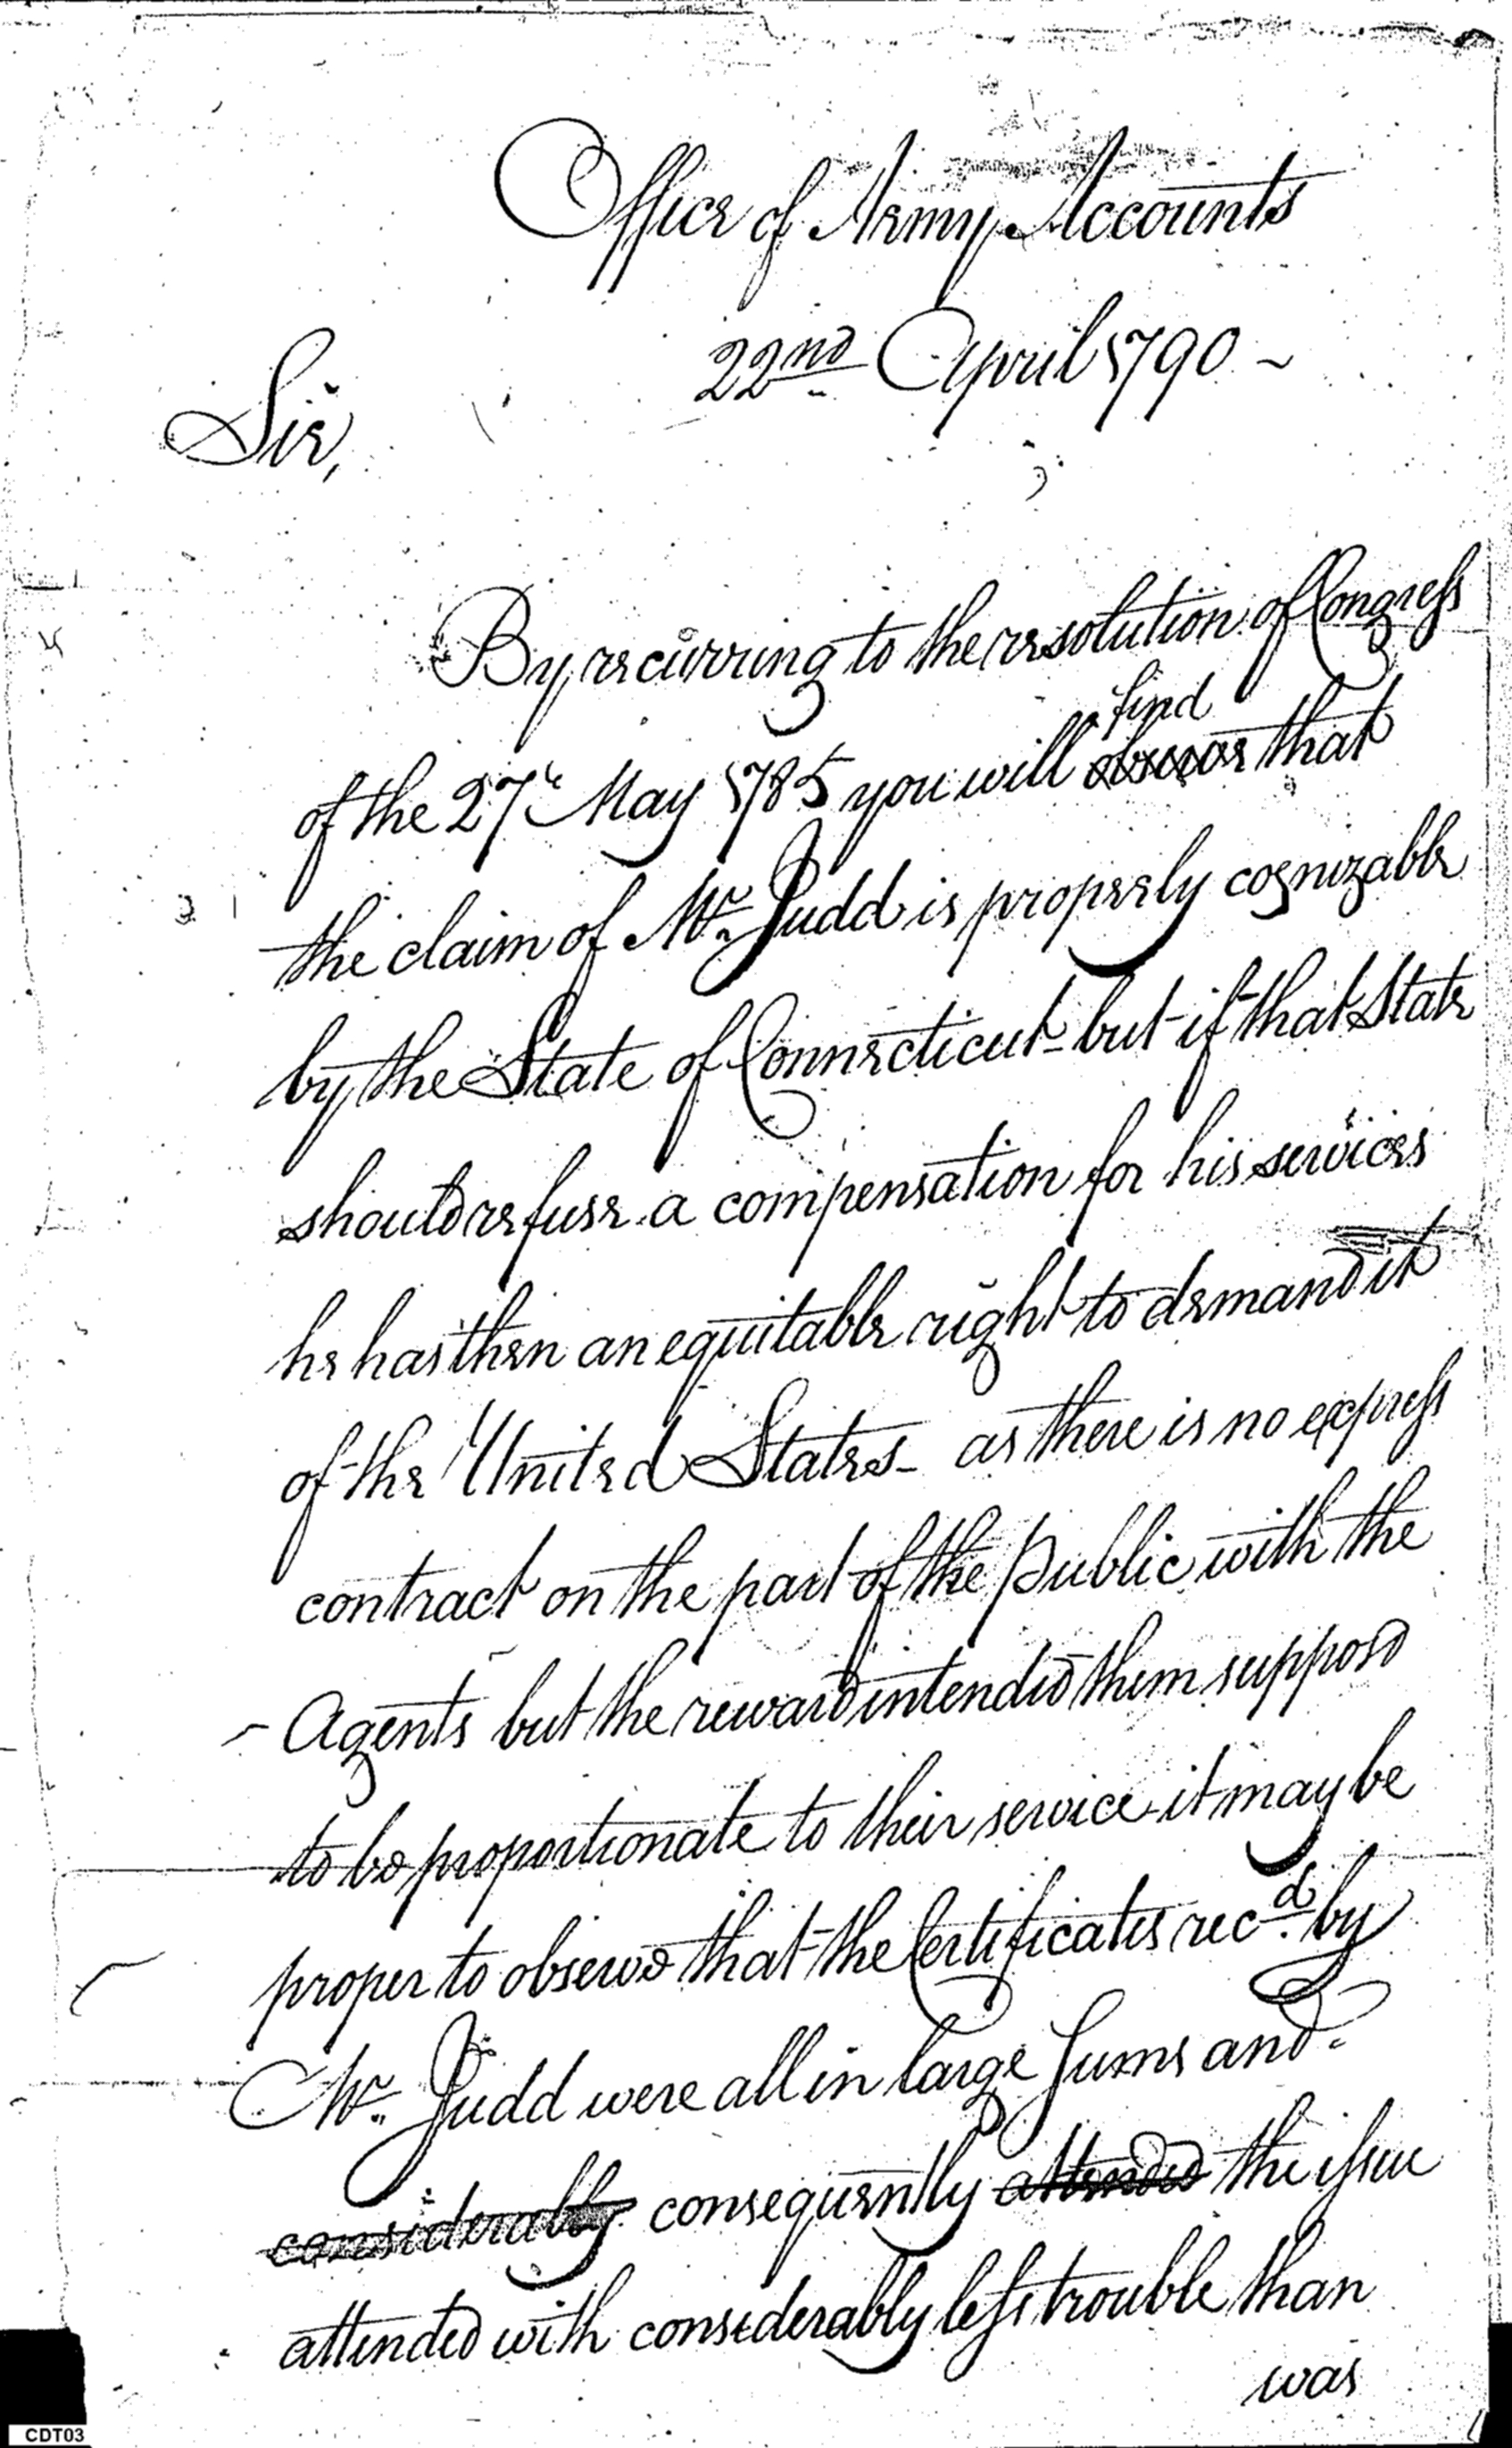 Office of Army Accounts
22nd April 1790 ~
Sir,
By recurring to the resolution of Congress
find
of the 27th May 1785 you will observe that
the claim of Mr. Judd is properly cognizable
by the State of Connecticut - but if that State
should refuse a compensation for his services
he has then an equitable right to demand it
of the United States - as there is no express
contract on the part of the public with the
Agents but the reward intended them supposd
to be proportionate to their service it may be
proper to observe that the Certificates recd. by
Mr. Judd were all in large Sums and
considerably consequently attended the issue
attended with considerably less trouble than
was
CDT03